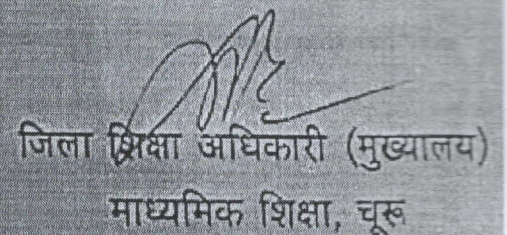 जिला शिक्षा अधिकारी (मुख्यालय)
माध्यमिक शिक्षा, चूरू